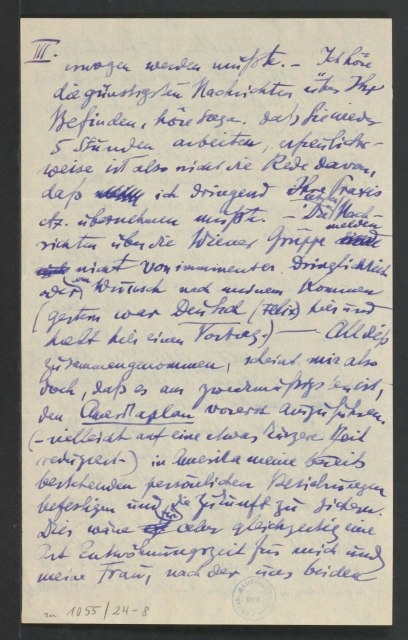 III.
erwogen werden müßte. – Ich höre
die günstigsten Nachrichten über Ihr
Befinden, höre sogar, daß Sie wieder
5 Stunden arbeiten, erfreulicher-
weise ist also nicht die Rede davon,
daß ich dringend Ihre Praxis
etc. übernehmen müßte. – Die Nach-
richten über die Wiener Gruppe melden
nicht von imminenter Dringlichkeit
oder Wunsch nach meinem Kommen
(gestern war Deutsch (Felix) hier und
hielt hier einen Vortrag.) — All dies
zusammengenommen, scheint mir also
doch, daß es am zweckmäßigsten ist,
den Amerikaplan vorerst auszuführen.
(– vielleicht auf eine etwas kürzere Zeit
reduziert –) in Amerika meine bereits
bestehenden persönlichen Beziehungen
befestigen und die Zukunft zu sichern.
Dies wäre aber gleichzeitig eine
Art Entwöhnungszeit für mich und
meine Frau, nach der uns beiden
1055/24-8